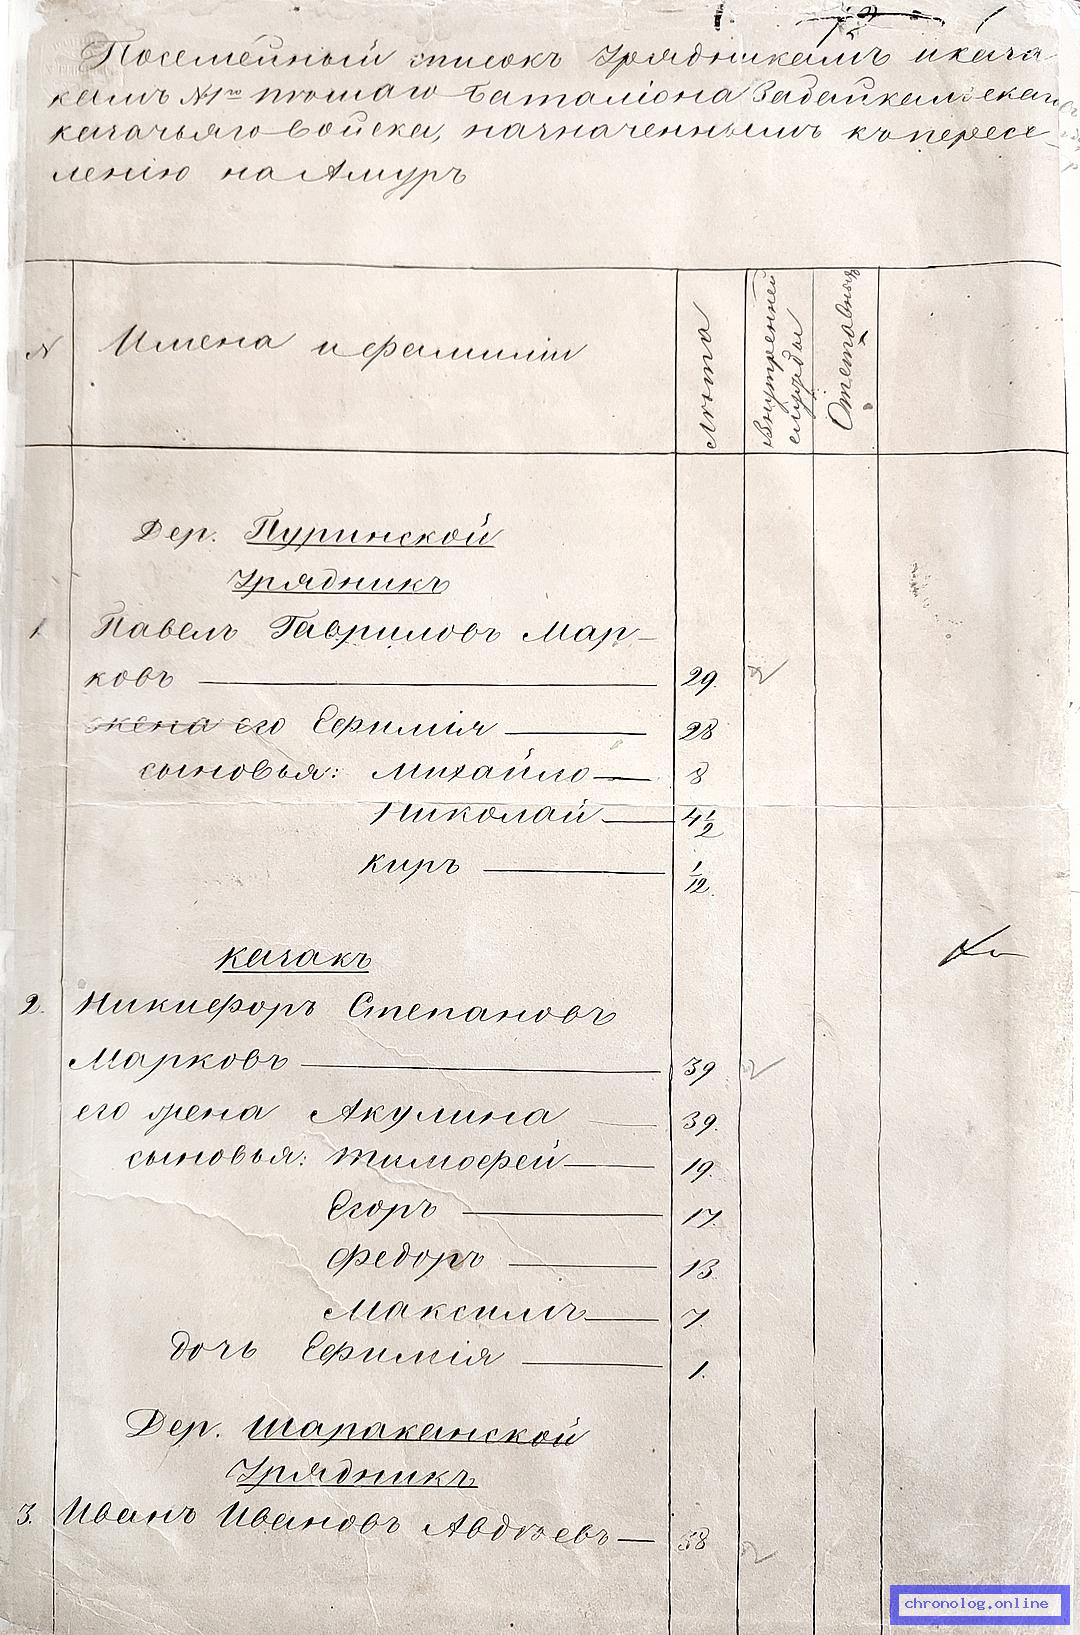 Посемейный списокъ Урядникамъ и каза
камъ №1го пѣшаго Баталіона Забайкальскаго
казачьяго войска, назначеннымъ къ пересе-
ленію на Амуръ
№
Имена и фамиліи
Лѣта
Внутренней
службы
Отставныхъ
Дер. Пуринской
Урядникъ
1. Павелъ Гавриловъ Мар-
ковъ 29.
жена его Ефимія 28
сыновья: Михайло 8
Николай 4 1/2
Киръ 1/12.
Казакъ
2. Никифоръ Степановъ
Марковъ 39
его жена Акулина 39.
сыновья: Тимофей 19.
Егоръ 17.
Федоръ 13.
Максимъ 7.
дочь Ефимія 1.
Дер. Шараканской
Урядникъ
3. Иванъ Ивановъ Авдѣевъ 38
chronolog.online